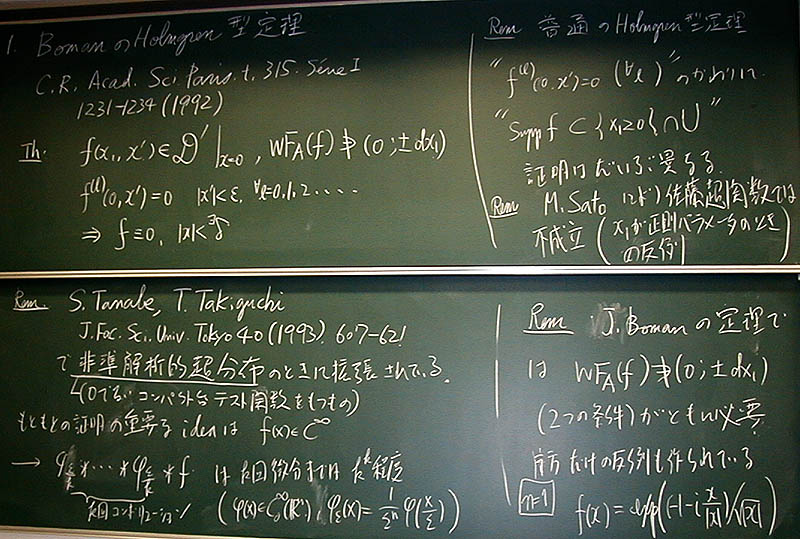 1. Boman の Holmgren 型定理
C.R. Acad. Sci. Paris. t. 315. Série I
1231-1234 (1992)
Th. f(x₁, x') ∈ 𝒟'|ₓ₌₀, WF_A(f) ∌ (0; ±dx₁)
f^(l)(0, x') = 0 |x'| < ε, ∀l = 0, 1, 2, ....
⇒ f ≡ 0, |x| < ∃δ
Rem 普通の Holmgren 型定理
"f^(l)(0, x') = 0 (∀l)" のかわりに
"supp f ⊂ {x₁≥0} ∩ U"
証明はだいぶ異なる.
Rem M. Sato 佐藤超関数では
不成立 (x₁が正則パラメータのとき
の反例)
Rem. S. Tanabe, T. Takiguchi
J. Fac. Sci. Univ. Tokyo 40 (1993). 607-621
で 非準解析的超分布のときに拡張されている.
(0でないコンパクト台テスト関数をもつもの)
もともとの証明の重要な idea は f(x) ∈ C^∞
→ φ_{ε/k} * ... * φ_{ε/k} * f は k回微分しても k^k 程度
k回コンボリューション (φ(x) ∈ C₀^∞(ℝⁿ), φ_ε(x) = 1/εⁿ φ(x/ε))
Rem J. Boman の定理で
は WF_A(f) ∌ (0; ±dx₁)
(2つの条件) がともに必要
片方だけの反例も作られている
n=1 f(x) = exp((-1-i x/|x|)/√|x|)